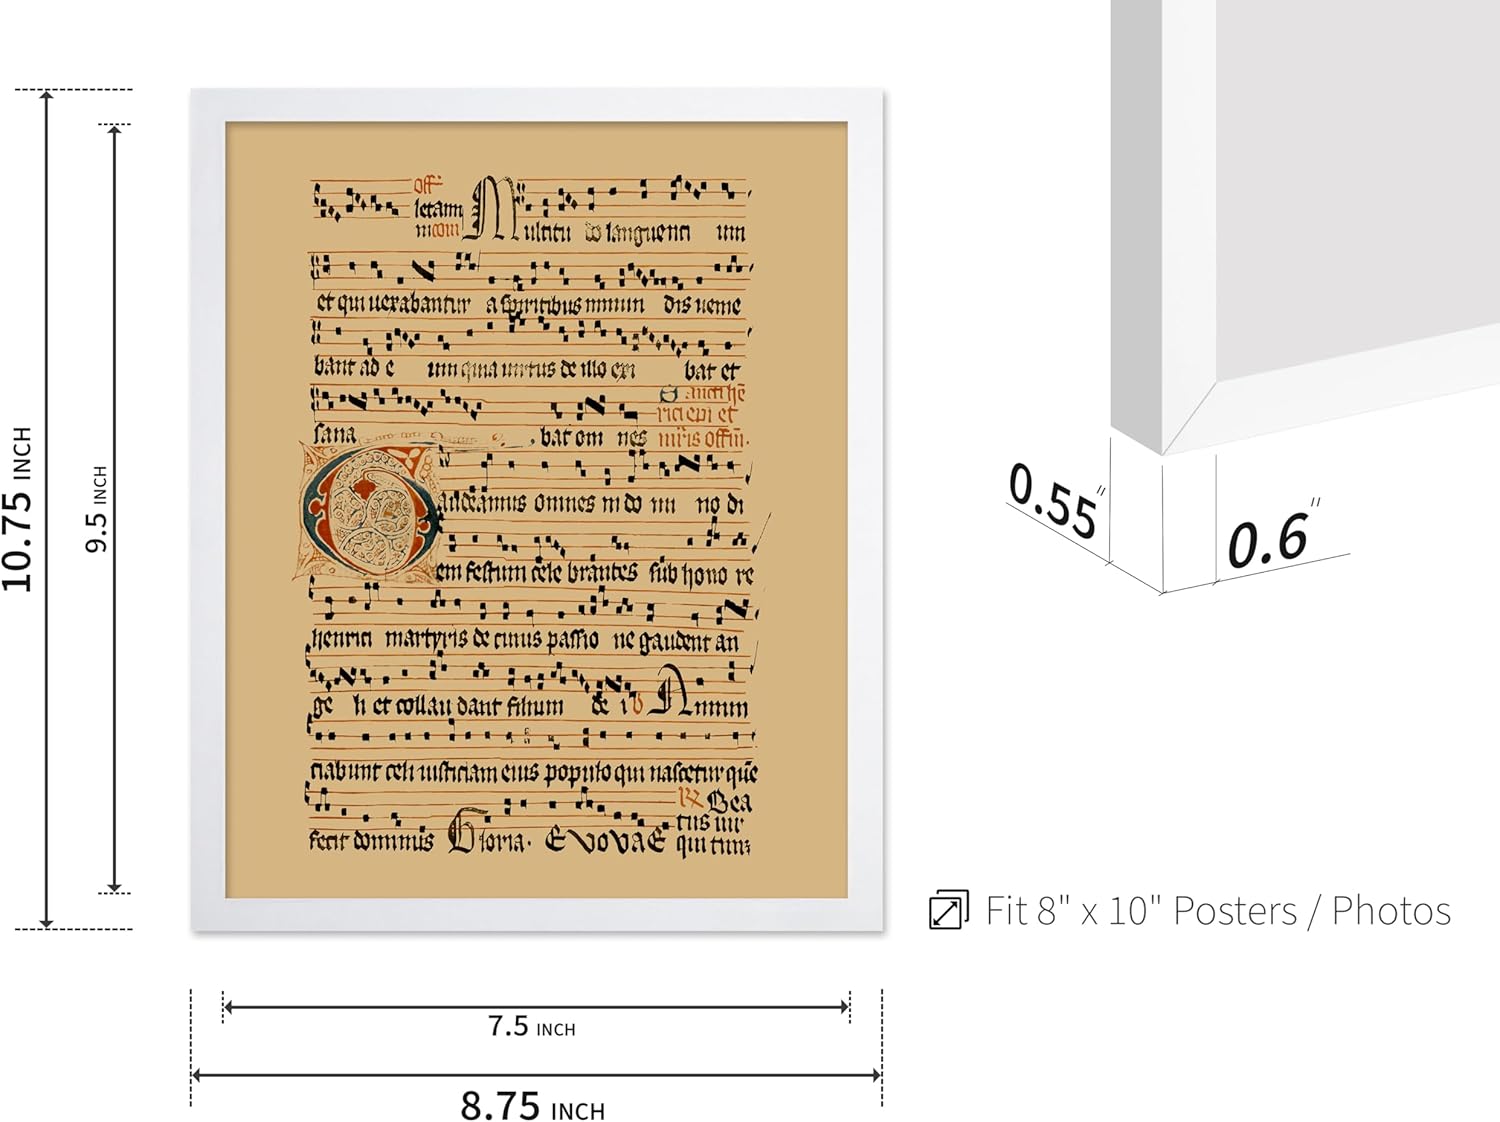 10.75 INCH
9.5 INCH
Off
letam
ultitu do languenti um
et qui uexabantur a spiritibus inmun dis ueme
bant ad e um quia uirtus de illo exi bat et
sana bat om nes
audeamus omnes in do mi no di
em festum cele brantes sub hono re
henrici martyris de cuius passio ne gaudent an
ge li et collau dant filium de i
ciabunt celi iusticiam eius populo qui nascetur que
fecit dominus Gloria. EVOVAE qui tum
Bea
tus uir
7.5 INCH
8.75 INCH
0.55"
0.6"
Fit 8" x 10" Posters / Photos